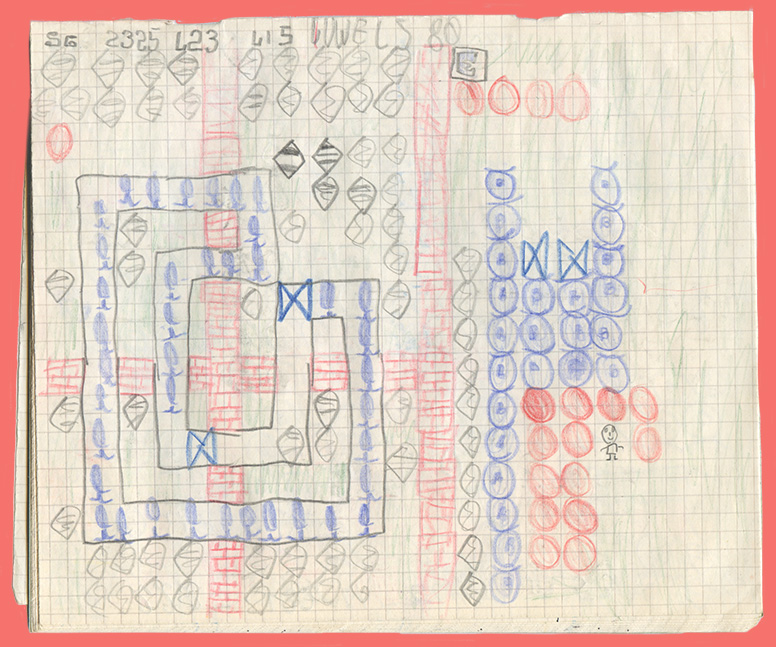 SG 2325 L23 L15 JUWELS 80